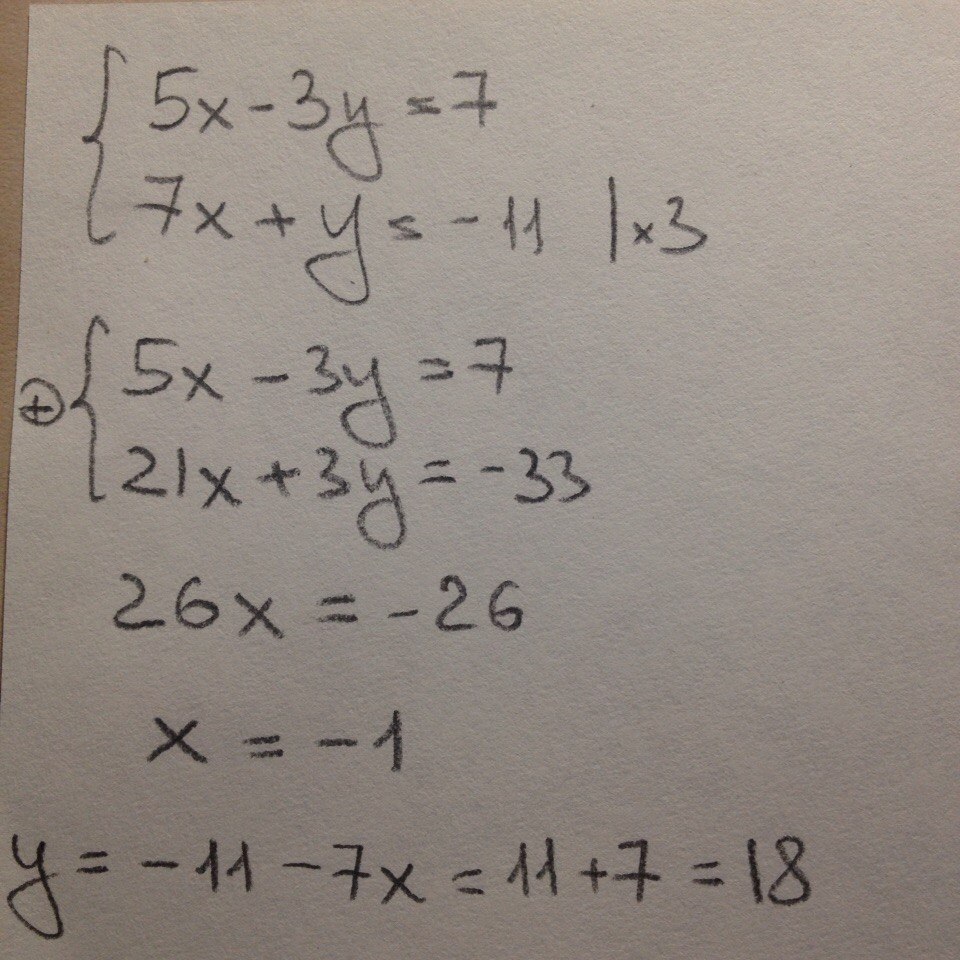 5x - 3y = 7
7x + y = -11 | x3
⊕ 5x - 3y = 7
21x + 3y = -33
26x = -26
x = -1
y = -11 - 7x = 11 + 7 = 18